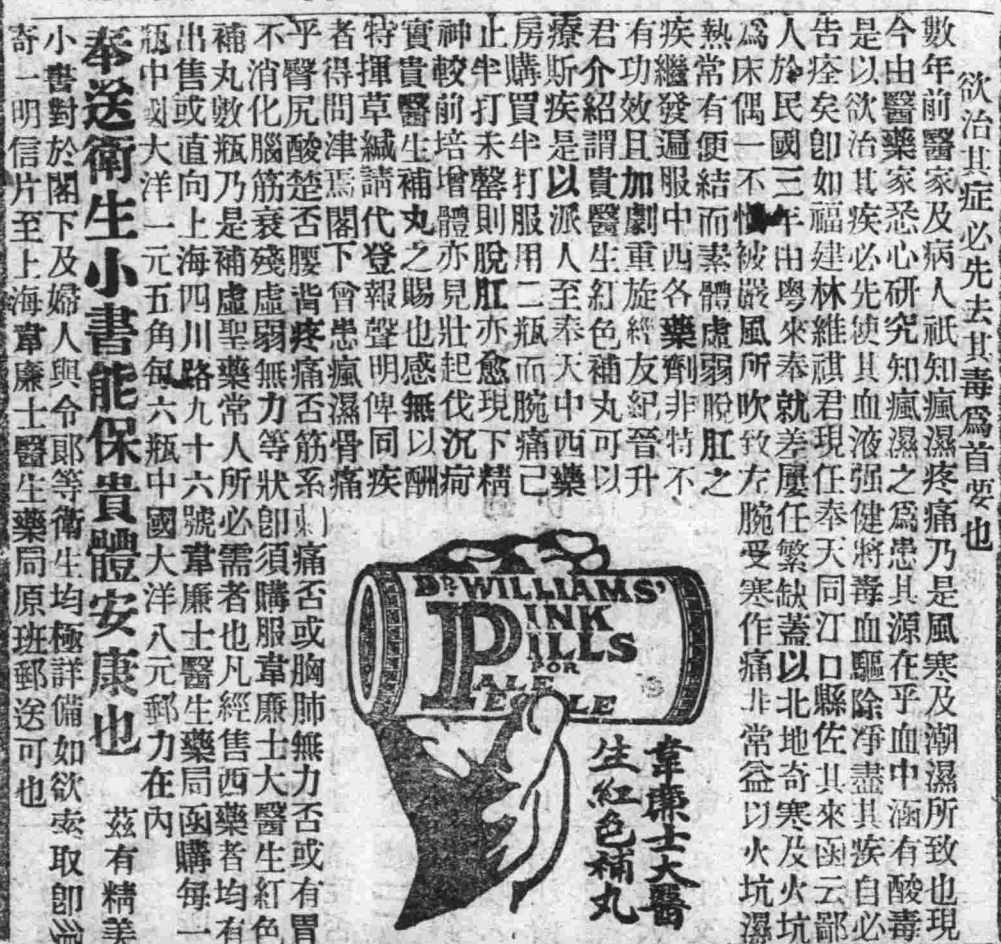 欲治其症必先去其毒爲首要也
數年前醫家及病人祇知瘋濕疼痛乃是風寒及潮濕所致也現
今由醫藥家悉心研究知瘋濕之爲患其源在乎血中涵有酸毒
是以欲治其疾必先使其血液强健將毒血驅除凈盡其疾自必
告痊矣卽如福建林維祺君現任奉天同江口縣佐其來函云鄙
人於民國三年由粤來奉就差屢任繁缺蓋以北地奇寒及火坑
爲床偶一不慎被嚴風所吹致左腕受寒作痛非常益以火坑濕
熱常有便結而素體虛弱脫肛之
疾繼發遍服中西各藥劑非特不
有功效且加劇重旋經友紀晉升
君介紹謂貴醫生紅色補丸可以
療斯疾是以派人至奉天中西藥
房購買半打服用二瓶而腕痛已
止半打未罄則脫肛亦愈現下精
神較前培增體亦見壯起伐沉疴
實貴醫生補丸之賜也感無以酬
特揮草緘請代登報聲明俾同疾
者得問津焉閣下曾患瘋濕骨痛
乎臀尻酸楚否腰背疼痛否筋系刺痛否或胸肺無力否或有胃
不消化腦筋衰殘虛弱無力等狀卽須購服韋廉士大醫生紅色
補丸數瓶乃是補虛聖藥常人所必需者也凡經售西藥者均有
出售或直向上海四川路九十六號韋廉士醫生藥局函購每一
瓶中國大洋一元五角每六瓶中國大洋八元郵力在內
奉送衛生小書能保貴體安康也 茲有精美
小書對於閣下及婦人與令郎等衛生均極詳備如欲索取卽
奇一明信片至上海韋廉士醫生藥局原班郵送可也
DR. WILLIAMS'
PINK
PILLS
FOR
PALE
PEOPLE
韋廉士大醫
生紅色補丸